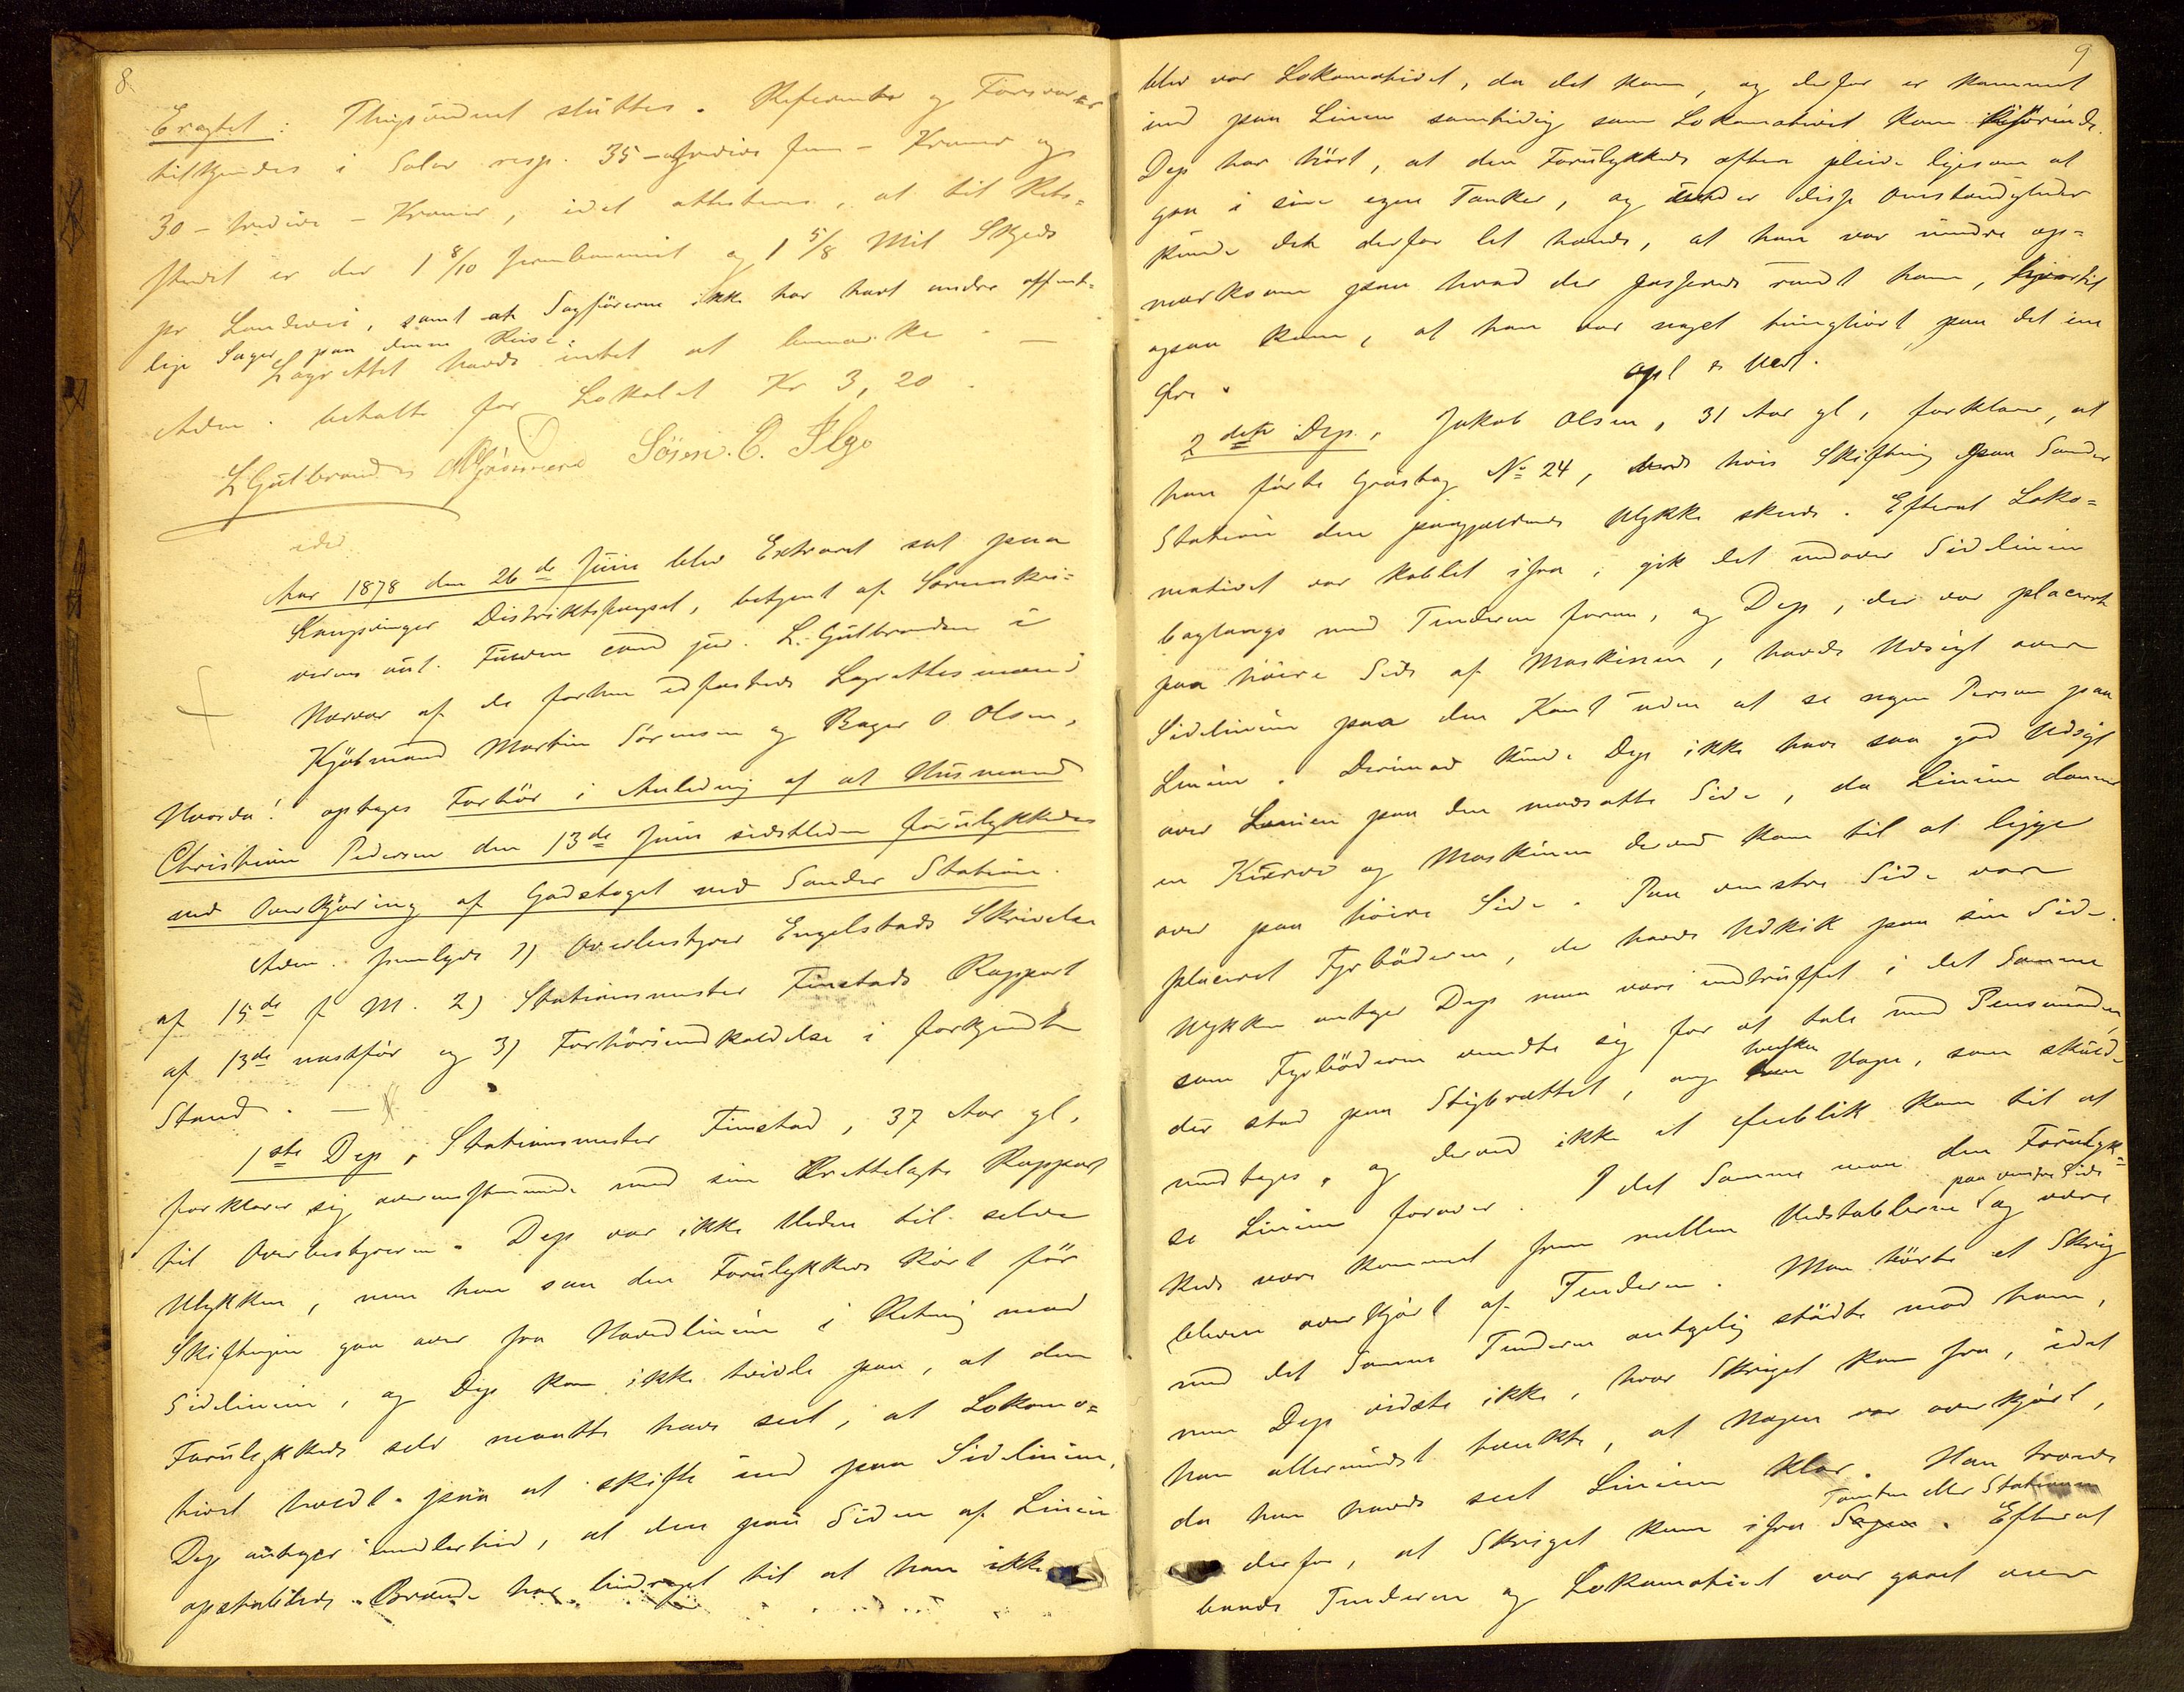 8
Eragtet: Thingsvidnet sluttes. Referenten og Forsvarer
tilkjendes i Salær resp. 35 - tredive fem - Kroner og
30 - tredive - Kroner, idet attesteres, at til Rets=
stedet er der 1 8/10 Jernbanemiil og 1 5/8 Mil Skyds
pr Landevei, samt at Sagførerne ikke har havt andre offent=
lige Sager paa denne Reise.
Lagrettet havde intet at bemærke. —
Adm. betalte for Lokalet Kr 3,20.
L Gulbrandsen Søren. C.
Aar 1878 den 26de Juni blev Extraret sat paa
Kongsvinger Distriktsfængsel, betjent af Sorenskri=
verens aut. Fuldm cand jur. L. Gulbrandsen i
Nærvær af de forhen edfæstede Lagrettesmænd
Kjøbmand Martin Sørensen og Bager O Olsen,
Hvorda! optages Forhör i Anledning af at Husmand
Christian Pedersen den 13de Juni sidstleden forulykkedes
ved Overkjøring af Godstoget ved Sander Station.
Adm. fremlagde 1) Overbestyrer Engelstads Skrivelse
af 15de d M. 2) Stationsmester Finstads Rapport
af 13de næstfør og 3) Forhørsindkaldelse i forkyndt
Stand. —
1ste Dep, Stationsmester Finstad, 37 Aar gl,
forklarer sig overensstemmende med sin Fremlagte Rapport
til Overbestyreren. Dep var ikke Vidne til selve
Ulykken, men han saa den Forulykkede kort før
Skiftningen gaa over fra Hovedlinien i Retning mod
Sidelinien, og Dep kan ikke tvivle paa, at den
Forulykkede selv maatte have seet, at Lokomo=
tivet holdt paa at skifte ind paa Sidelinien.
Dep antager imidlertid, at den paa Siden af Linien
opstablede Brænde har bidraget til at han ikke
9
blev var Lokomotivet, da det kom, og derfor er kommet
ind paa Linien samtidig som Lokomotivet kom
Dep har hørt, at den Forulykkede oftere pleiede ligesom at
gaa i sine egne Tanker, og under disse Omstændigheder
kunde det derfor let hænde, at han var mindre op=
mærksom paa hvad der passerede rundt ham, hvortil
ogsaa kom, at han var noget tunghørt paa det ene
Øre. Opl & Vedt.
2det Dep, Jakob Olsen, 31 Aar gl, forklarer, at
han førte Godstog No 24, under hvis Skiftning paa Sander
Station den paagjældende Ulykke skede. Efterat Loko=
motivet var koblet ifra, gik det indover Sidelinien
baglængs med Tenderen foran, og Dep, der var placeret
paa höire Side af Maskinen, havde Udsigt over
Sidelinien paa den Kant uden at se nogen Person paa
Linien. Derimod kunde Dep ikke have saa god Udsigt
over Linien paa den modsatte Side, da Linien danner
en Kurve og Maskinen derved kom til at ligge
over paa høire Side. Paa venstre Side var
placeret Fyrbøderen, der havde Udkik paa sin Side.
Ulykken antager Dep maa være indtruffet i det Samme
som Fyrbøderen vendte sig for at tale med Pensmanden,
der stod paa Stigbrættet, ang hvilken Vogn, som skulde
medtages, og derved ikke et Øieblik kom til at
se Linien forover. I det Samme maa den Forulyk=
kede være kommet frem mellem Vedstablerne paa venstre Side og være
bleven overkjørt af Tenderen. Man hørte et Skrig
med det Samme Tenderen antagelig stødte mod ham,
men Dep vidste ikke, hvor Skriget kom fra, idet
han allermindst tænkte, at Nogen var overkjørt,
da han havde seet Linien klar. Han troede
derfor, at Skriget kom ifra Tomten eller Stationen. Efterat
baade Tenderen og Lokomotivet var gaaet over